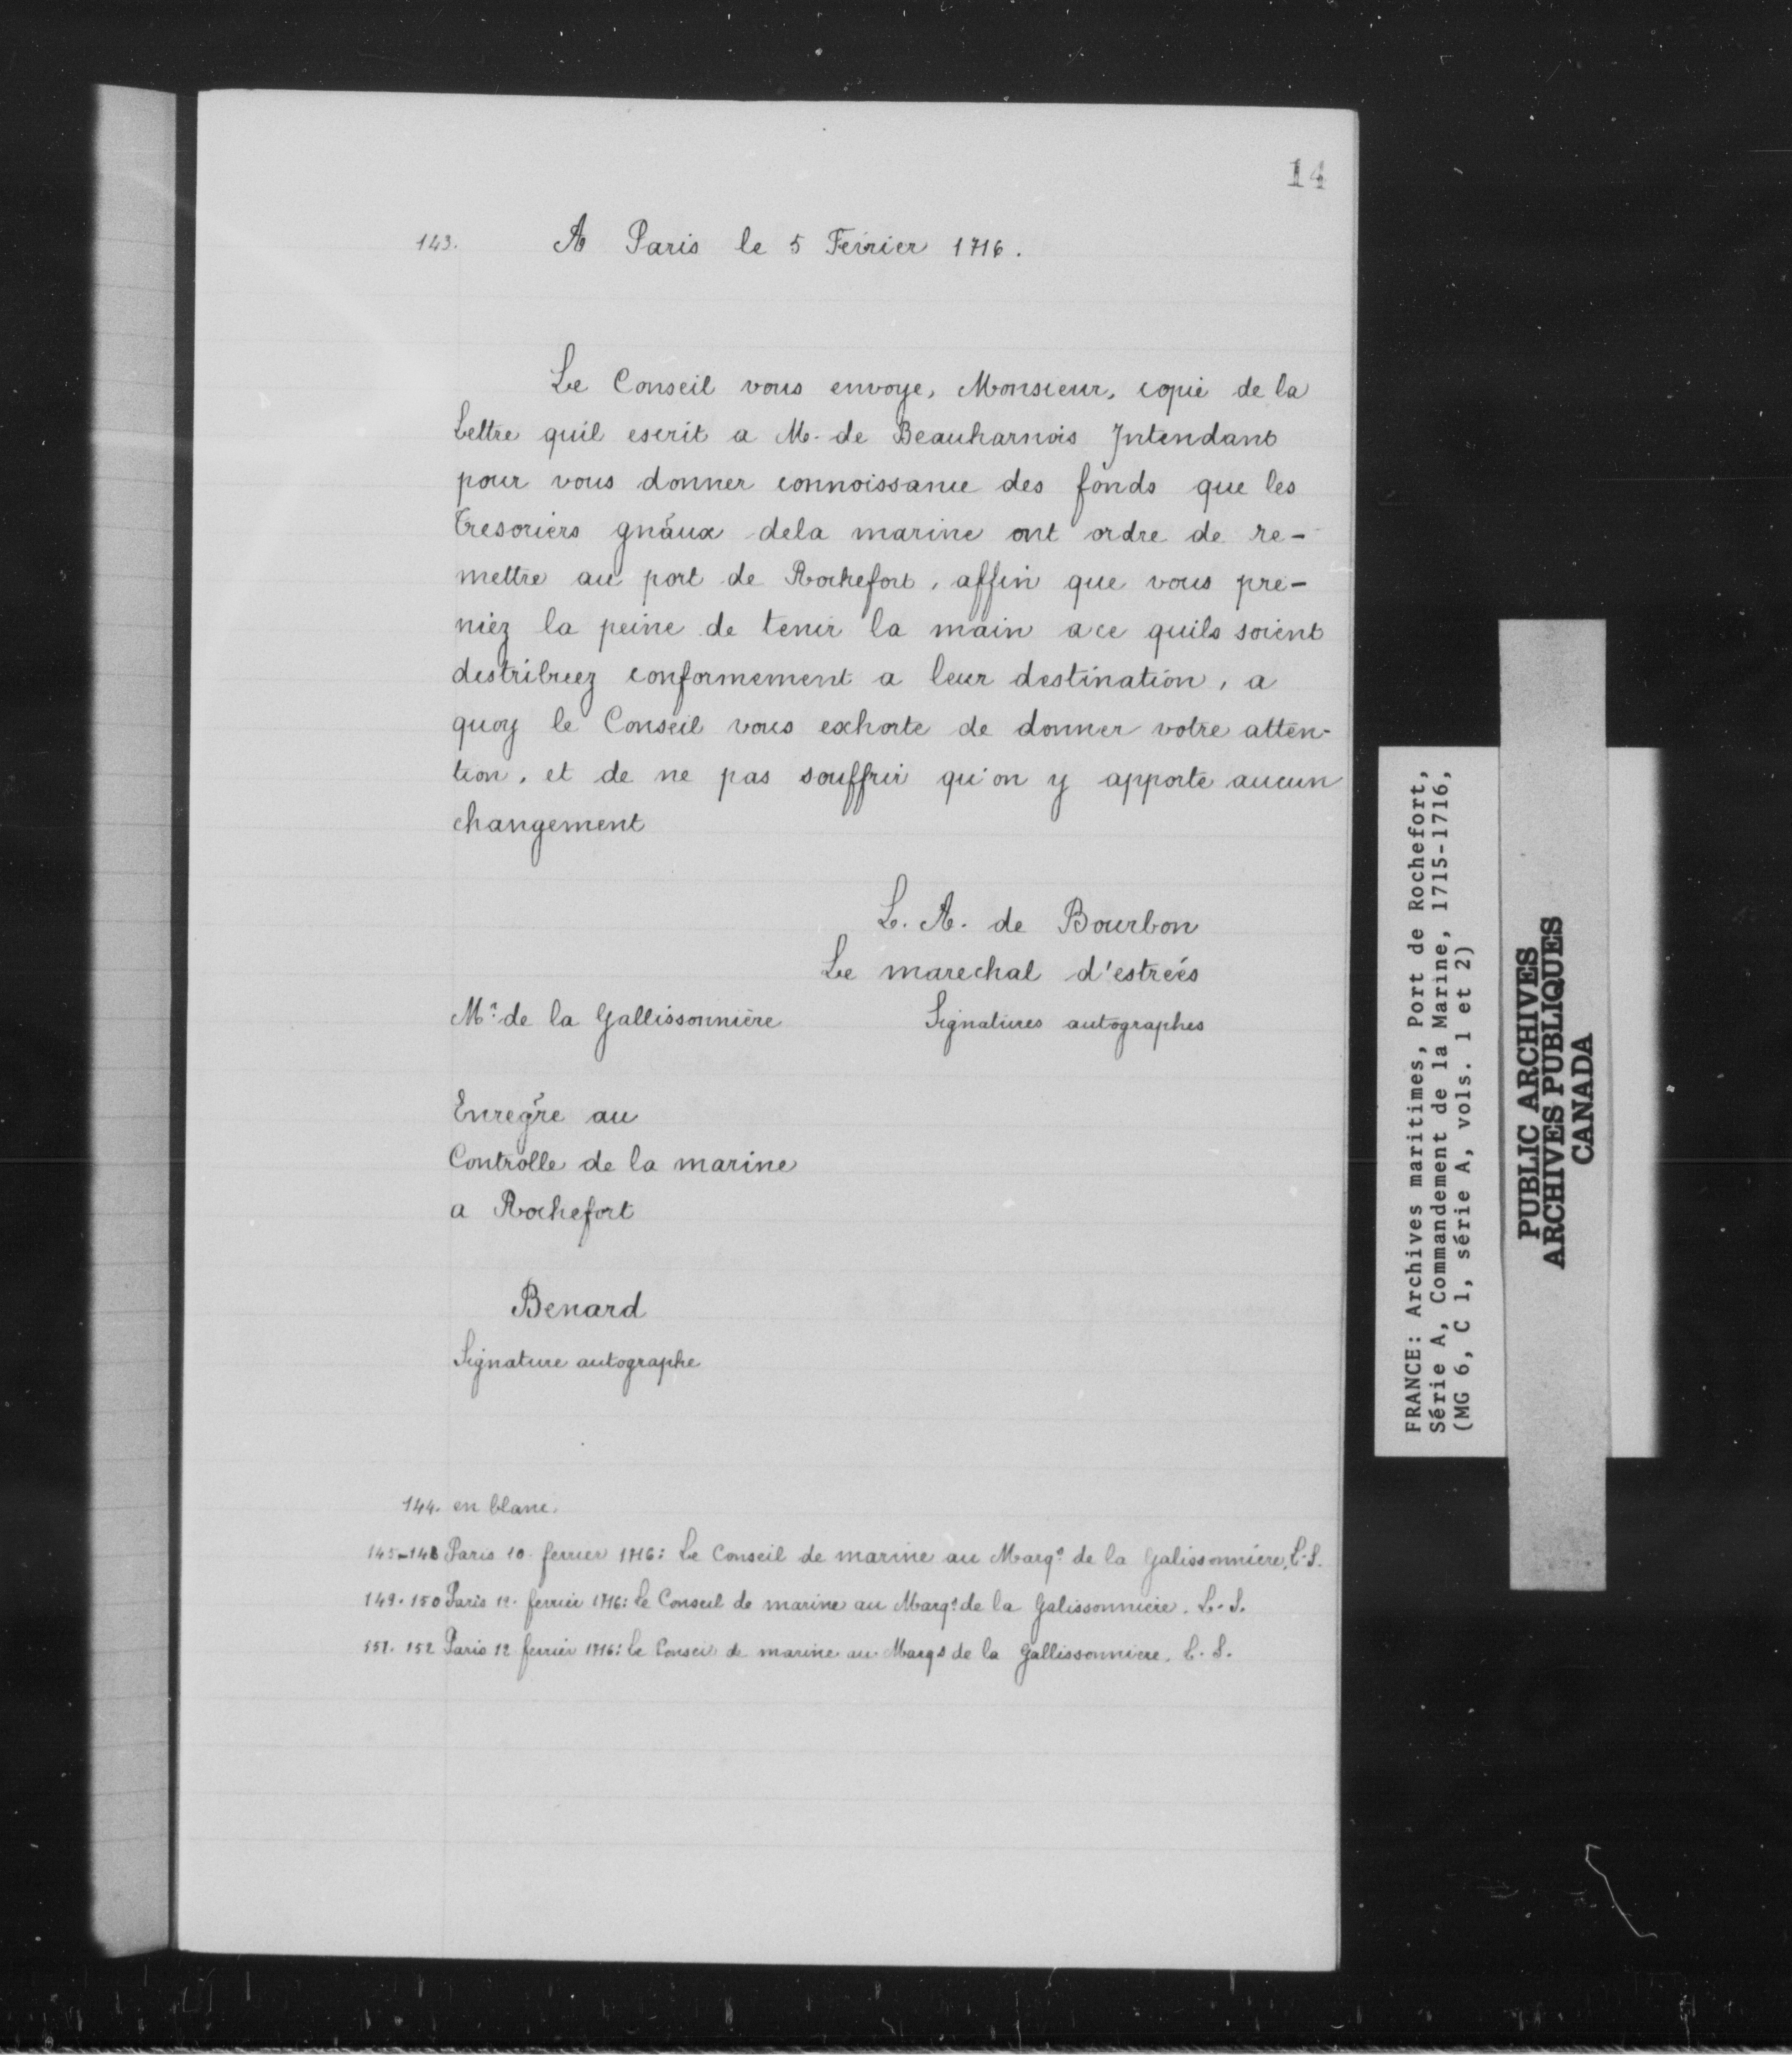 14
143. A Paris le 5 Fevrier 1716.
Le Conseil vous envoye, Monsieur, copie de la
Lettre quil escrit a M. de Beauharnois Intendant
pour vous donner connoissance des fonds que les
Tresoriers gnãux dela marine ont ordre de re-
mettre au port de Rochefort, affin que vous pre-
niez la peine de tenir la main ace quils soient
distribuez conformement a leur destination, a
quoy le Conseil vous exhorte de donner votre atten-
tion, et de ne pas souffrir qu'on y apporte aucun
changement
L. A. de Bourbon
Le marechal d'estrées
Mr. de la Gallissonnière Signatures autographes
Enregre au
Controlle de la marine
a Rochefort
Benard
Signature autographe
144. en blanc.
145-148 Paris 10 fevrier 1716: Le Conseil de marine au Marqs de la Galissonniere. L.S.
149-150 Paris 12 fevrier 1716: Le Conseil de marine au Marqs de la Galissonniere. L.S.
151-152 Paris 12 fevrier 1716: Le Conseil de marine au Marqs de la Gallissonniere. L.S.
FRANCE: Archives maritimes, Port de Rochefort,
Série A, Commandement de la Marine, 1715-1716,
(MG 6, C 1, série A, vols. 1 et 2)
PUBLIC ARCHIVES
ARCHIVES PUBLIQUES
CANADA